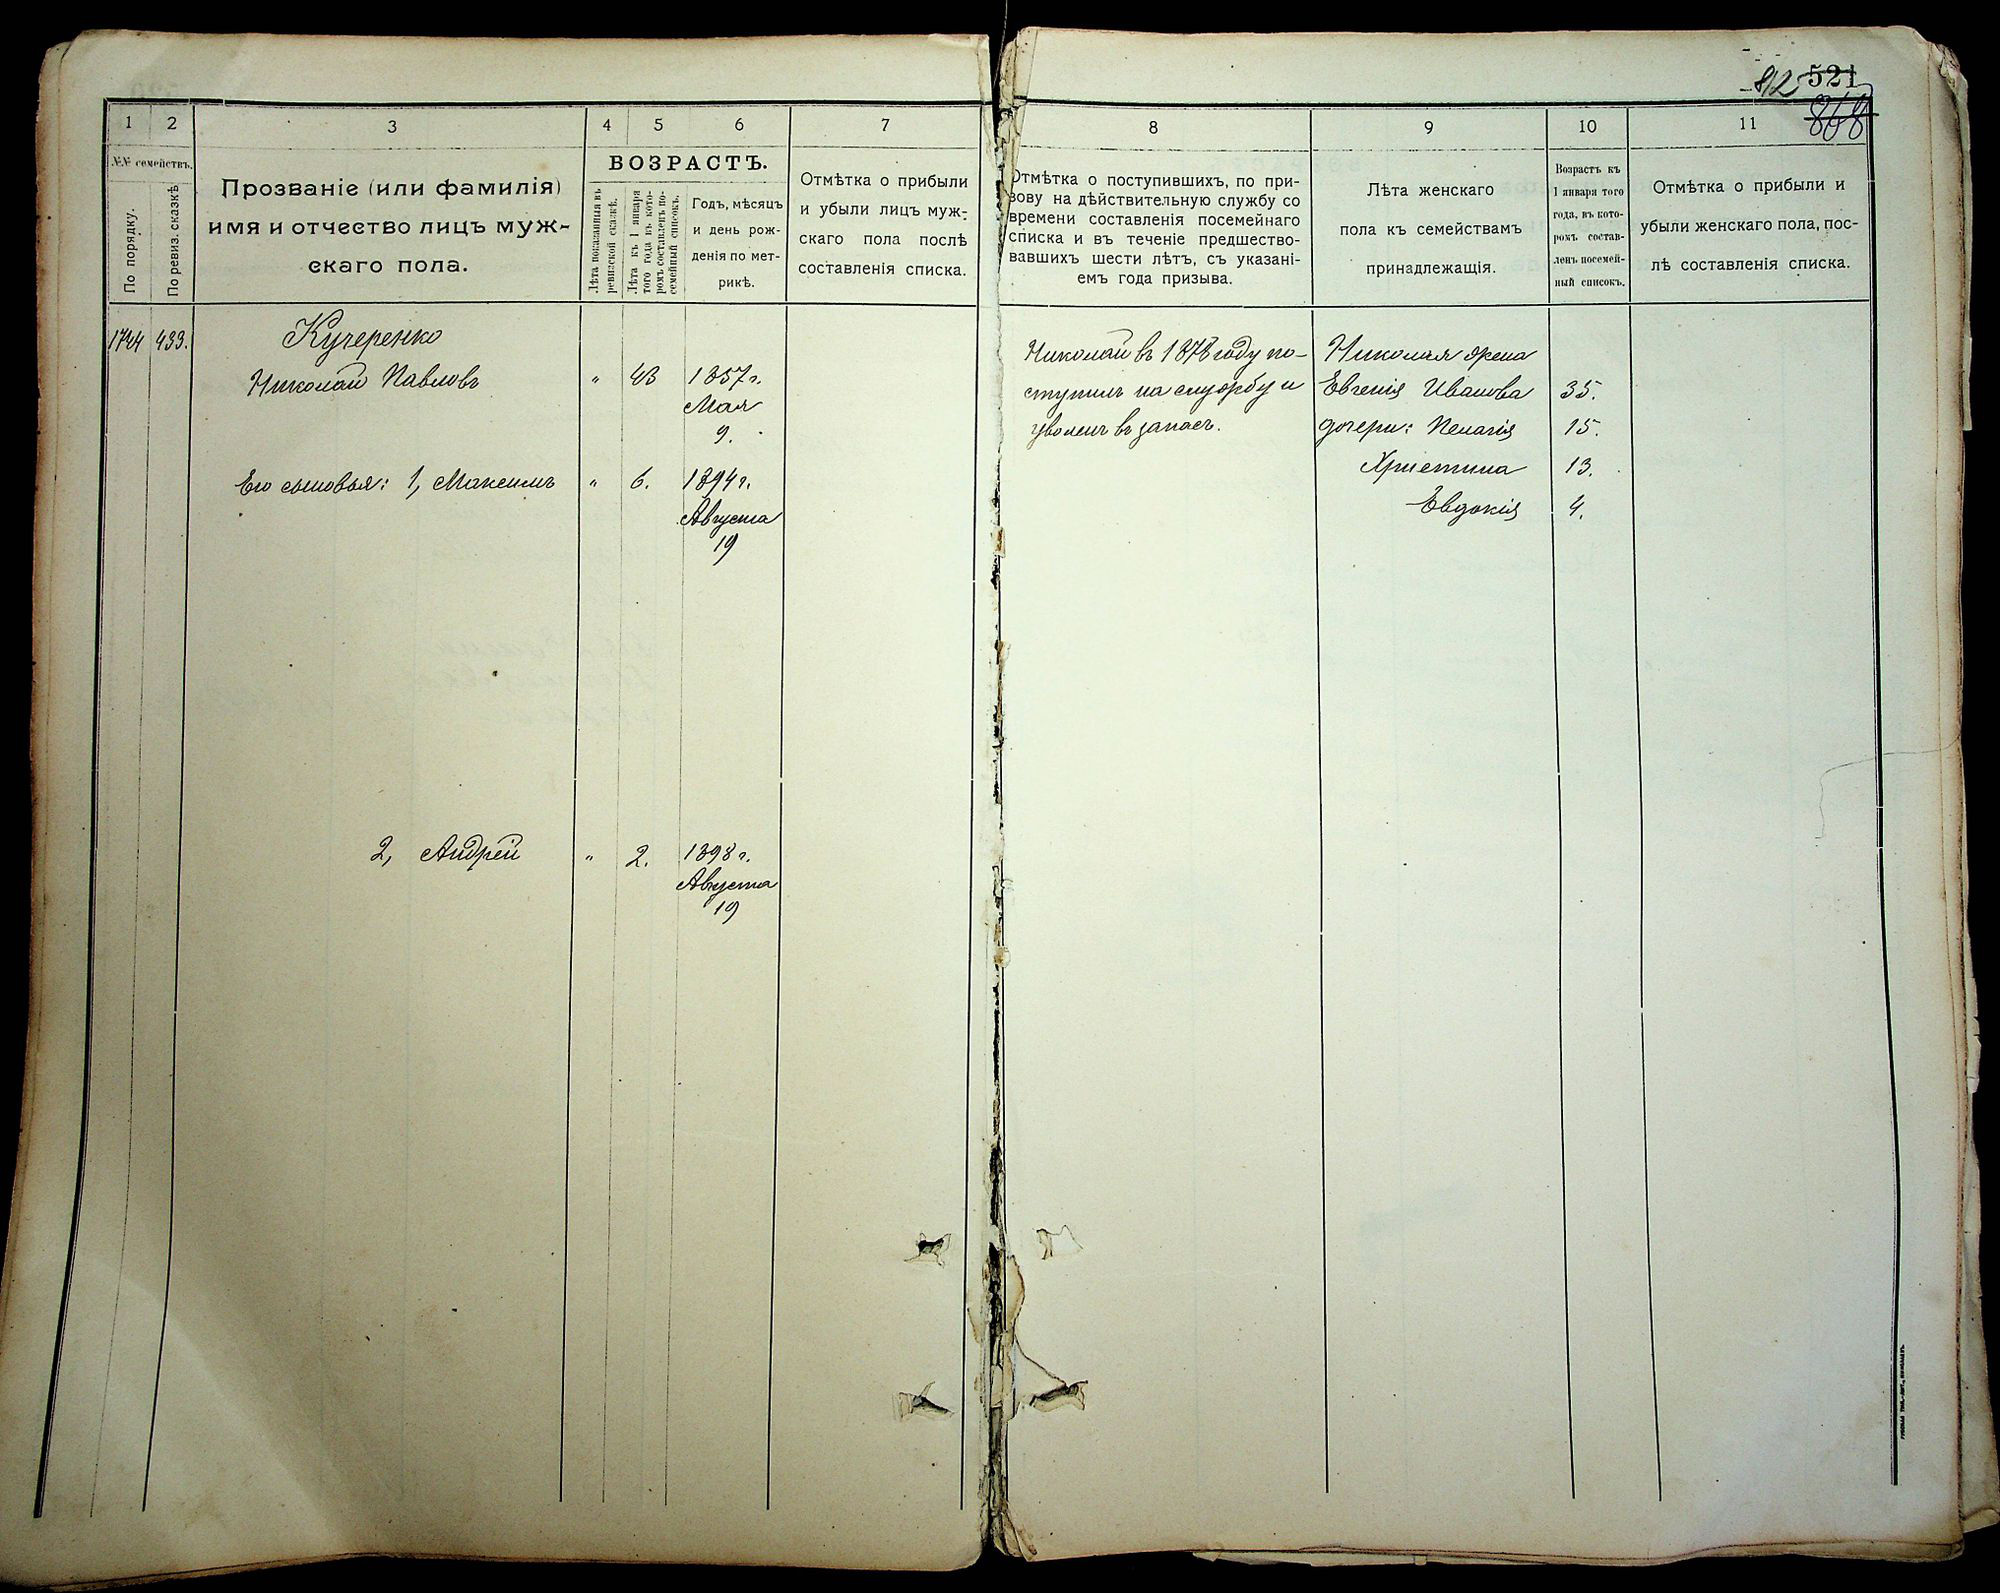 812 521
868
1 2 3 4 5 6 7
№№ семействъ.
По порядку.
По ревиз. сказкѣ
Прозваніе (или фамилія)
имя и отчество лицъ муж-
скаго пола.
ВОЗРАСТЪ.
Лѣта показанныя въ
ревизской сказкѣ.
Лѣта къ 1 января
того года въ кото-
ромъ составленъ по-
семейный списокъ.
Годъ, мѣсяцъ
и день рож-
денія по мет-
рикѣ.
Отмѣтка о прибыли
и убыли лицъ муж-
скаго пола послѣ
составленія списка.
1744 433. Кучеренко
Николай Павловъ " 43 1857 г.
Мая
9.
Его сыновья: 1, Максимъ " 6. 1894 г.
Августа
19
2, Андрей " 2. 1898 г.
Августа
19
8 9 10 11
Отмѣтка о поступившихъ, по при-
зову на дѣйствительную службу со
времени составленія посемейнаго
списка и въ теченіе предшество-
вавшихъ шести лѣтъ, съ указані-
емъ года призыва.
Лѣта женскаго
пола къ семействамъ
принадлежащія.
Возрастъ къ
1 января того
года, въ кото-
ромъ состав-
ленъ посемей-
ный списокъ.
Отмѣтка о прибыли и
убыли женскаго пола, пос-
лѣ составленія списка.
Николай въ 1878 году по-
ступилъ на службу и
уволенъ въ запасъ.
Николая жена
Евгенія Иванова 35.
дочери: Пелагія 15.
Христина 13.
Евдокія 4.